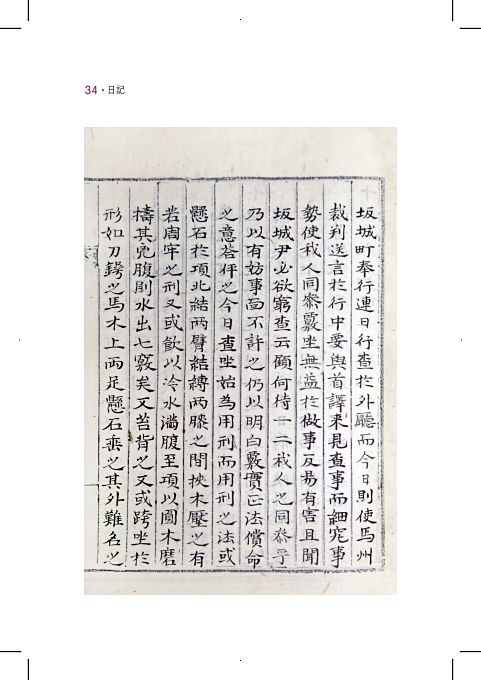 34 · 日記
坂城町奉行連日行査於外廳而今日則使馬州
裁判送言於行中要與首譯来見査事而細究事
勢使我人同叅覈坐無益於做事反易有害且聞
坂城尹必欲窮査云顧何待一二我人之同叅乎
乃以有妨事面不許之仍以明白覈實正法償命
之意荅伻之今日査坐始為用刑而用刑之法或
懸石於項北結兩臂結縛兩膝之間挾木壓之有
若周牢之刑又或飮以冷水滿腹至項以圓木磨
擣其腹則水出七竅矣又笞背之又或跨坐於
形如刀鍔之馬木上兩足懸石垂之其外難名之